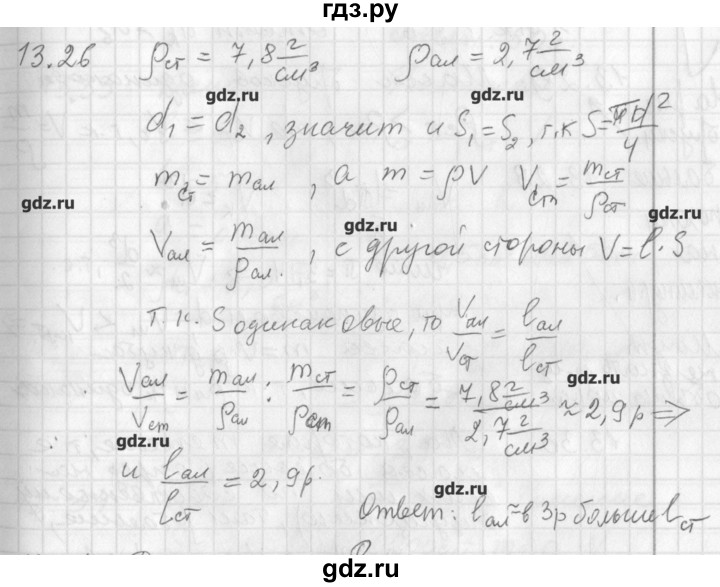 гдз.ру
13.26 ρст = 7,8 г/см³ ρал = 2,7 г/см³
gdz.ru gdz.ru
d₁ = d₂, значит и S₁ = S₂, т.к S = πd²/4
mст = mал, а m = ρV Vст = mст/ρст
gdz.ru gdz.ru gdz.ru
Vал = mал/ρал., с другой стороны V = l·S
Т.к. S одинаковые, то Vал/Vст = lал/lст
gdz.ru gdz.ru
Vал/Vст = mал/ρал : mст/ρст = ρст/ρал = 7,8 г/см³ / 2,7 г/см³ ≈ 2,9 р ⇒
gdz.ru
и lал/lст = 2,9 р.
gdz.ru
Ответ: lал ≈ в 3р больше lст
гдз.ру